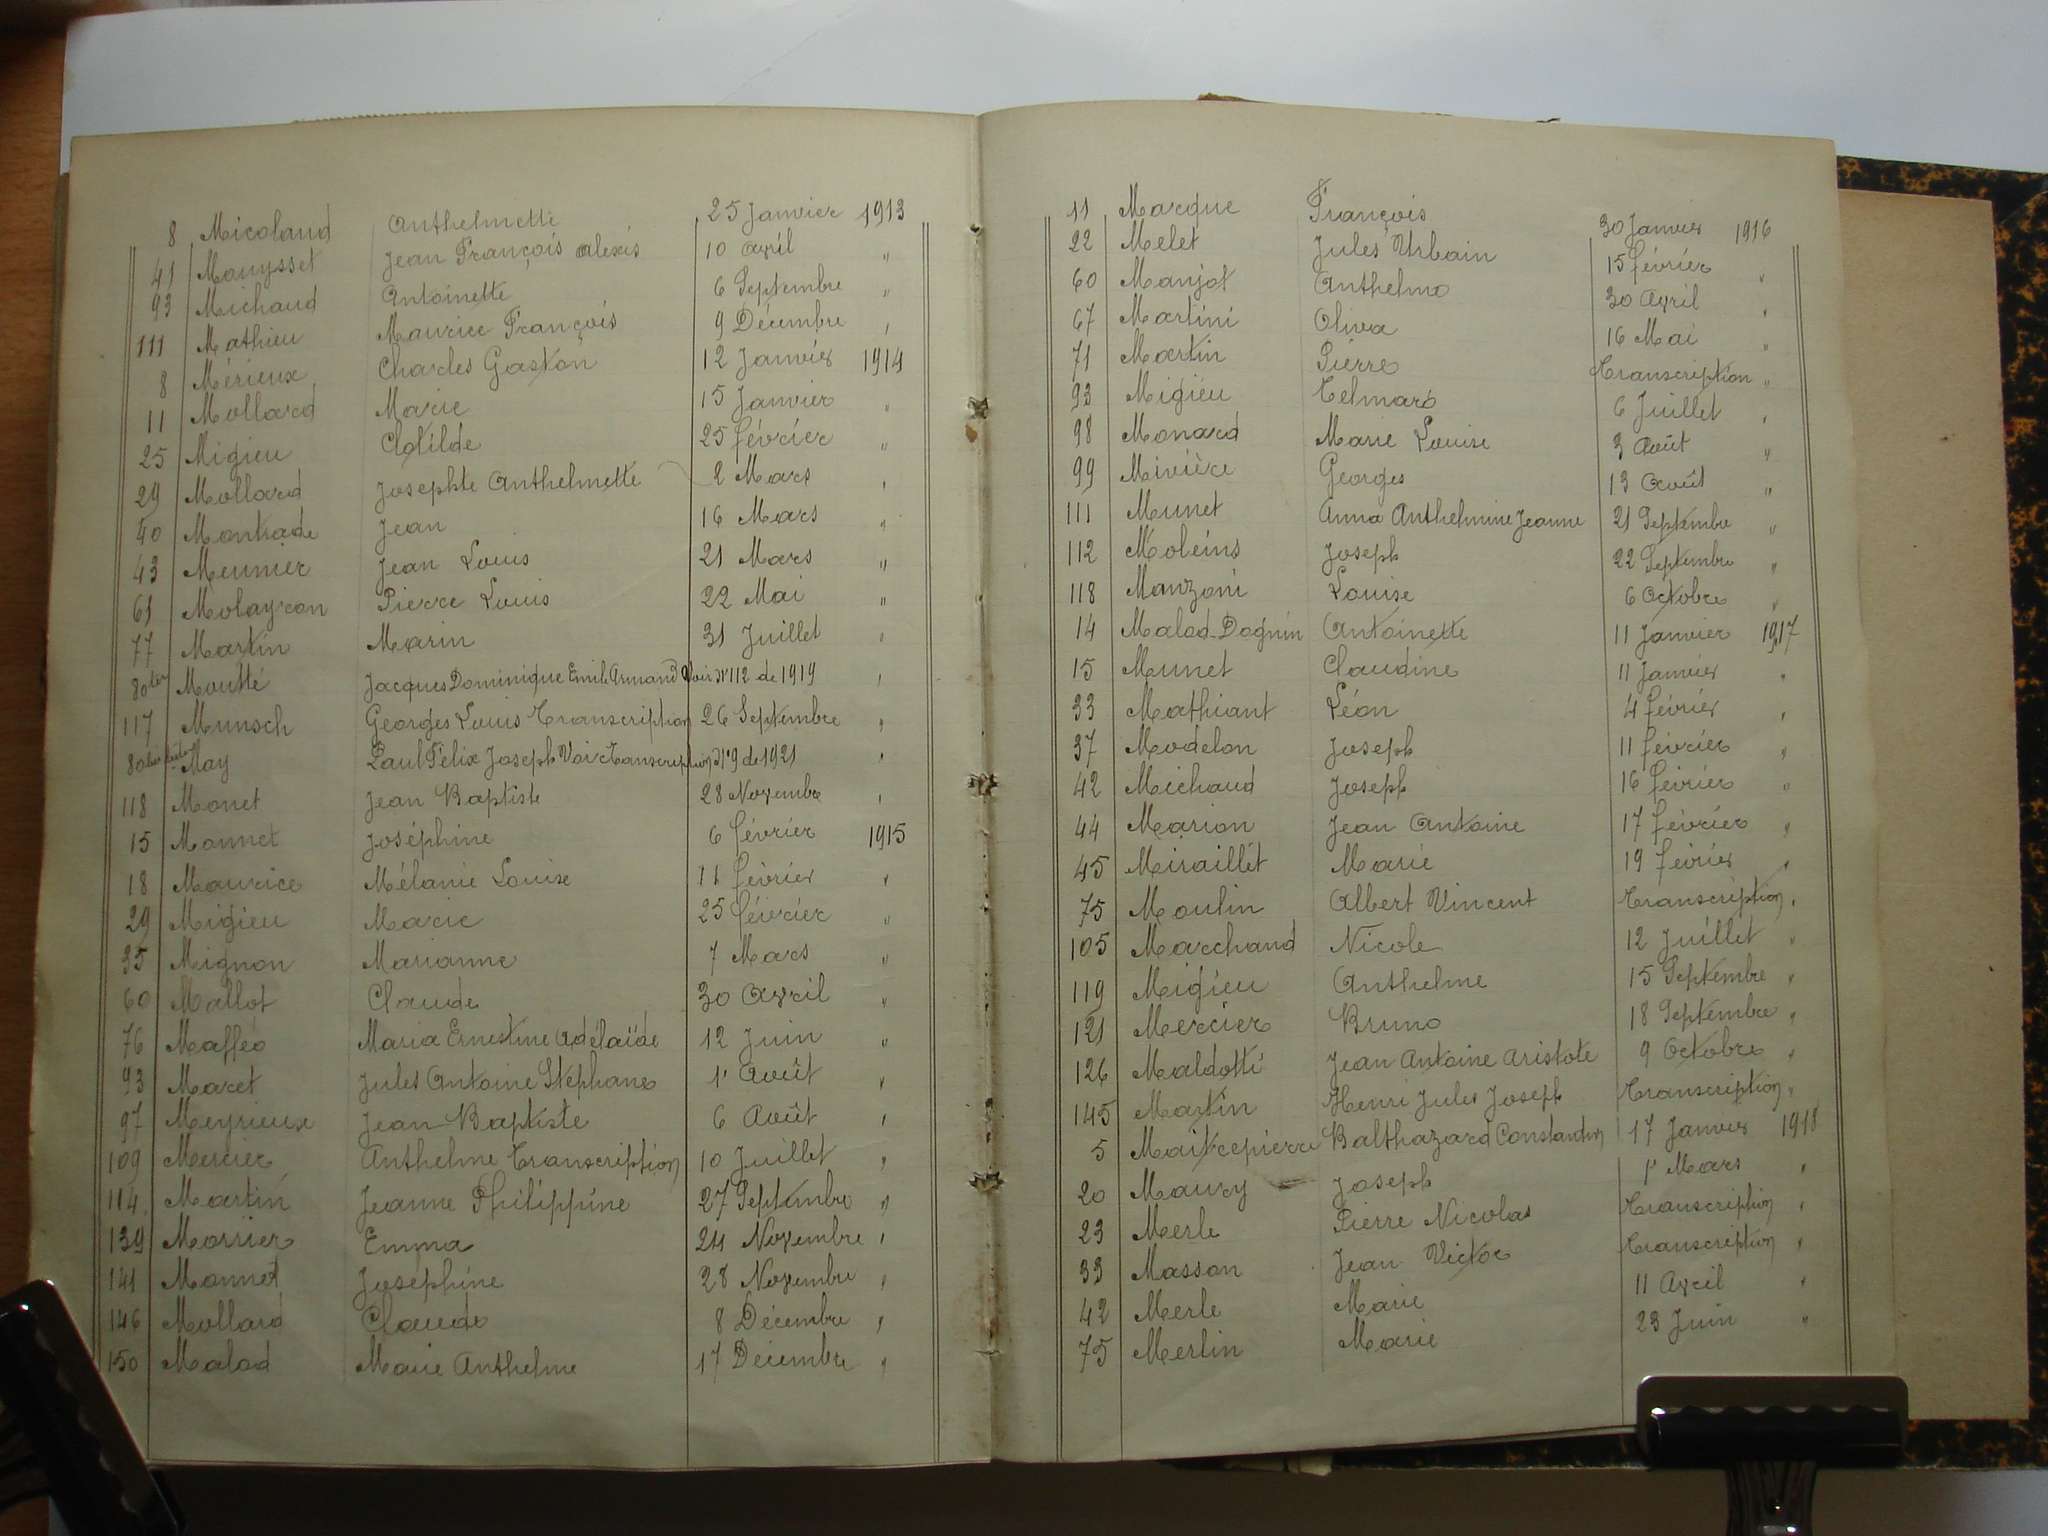 8 Micoland Anthelmette 25 Janvier 1913
41 Mouysset Jean François Alexis 10 Avril "
93 Michaud Antoinette 6 Septembre "
111 Mathieu Maurice François 9 Décembre "
8 Mérieux Charles Gaston 12 Janvier 1914
11 Mollard Marie 15 Janvier "
25 Migieu Clotilde 25 février "
29 Mollard Josephte Anthelmette 2 Mars "
40 Montrade Jean 16 Mars "
43 Meunier Jean Louis 21 Mars "
61 Molayron Pierre Louis 22 Mai "
77 Martin Marin 31 Juillet "
80 ter Moutté Jacques Dominique Emile Armand Voir N° 112 de 1919 "
117 Munsch Georges Louis Transcription 26 Septembre "
80 May Paul Félix Joseph Voir Transcription N° 9 de 1921 "
118 Monet Jean Baptiste 28 Novembre "
15 Monnet Joséphine 6 février 1915
18 Maurice Mélanie Louise 11 février "
29 Migieu Marie 25 février "
35 Mignon Marianne 7 Mars "
60 Mallot Claude 30 Avril "
76 Mafféo Maria Ernestine Adélaïde 12 Juin "
93 Maret Jules Antoine Stéphane 1' Août "
97 Meyrieux Jean Baptiste 6 Août "
109 Mercier Anthelme Transcription 10 Juillet "
114 Martin Jeanne Philippine 27 Septembre "
139 Morrier Emma 24 Novembre "
141 Monnet Joséphine 28 Novembre "
146 Mollard Claude 8 Décembre "
150 Malod Marie Anthelme 17 Décembre "
11 Marque François 30 Janvier 1916
22 Melet Jules Urbain 15 février "
60 Manjot Anthelme 30 Avril "
67 Martini Oliva 16 Mai "
71 Martin Pierre Transcription "
93 Migieu Telmare 6 Juillet "
98 Monard Marie Louise 3 Août "
99 Mivière Georges 13 Août "
111 Munet Anna Anthelmine Jeanne 21 Septembre "
112 Moleins Joseph 22 Septembre "
118 Manzoni Louise 6 Octobre "
14 Malod-Dognin Antoinette 11 Janvier 1917
15 Munet Claudine 11 Janvier "
33 Mathiant Léon 4 février "
37 Modelon Joseph 11 février "
42 Michaud Joseph 16 février "
44 Marion Jean Antoine 17 février "
45 Miraillet Marie 19 février "
75 Moulin Albert Vincent Transcription "
105 Marchand Nicole 12 Juillet "
119 Migieu Anthelme 15 Septembre "
121 Mercier Bruno 18 Septembre "
126 Maldotti Jean Antoine Aristote 9 Octobre "
145 Martin Henri Jules Joseph Transcription "
5 Maitrepierre Balthazard Constantin 17 Janvier 1918
20 Maury Joseph 1' Mars "
23 Merle Pierre Nicolas Transcription "
33 Masson Jean Victor Transcription "
42 Merle Marie 11 Avril "
75 Merlin Marie 23 Juin "